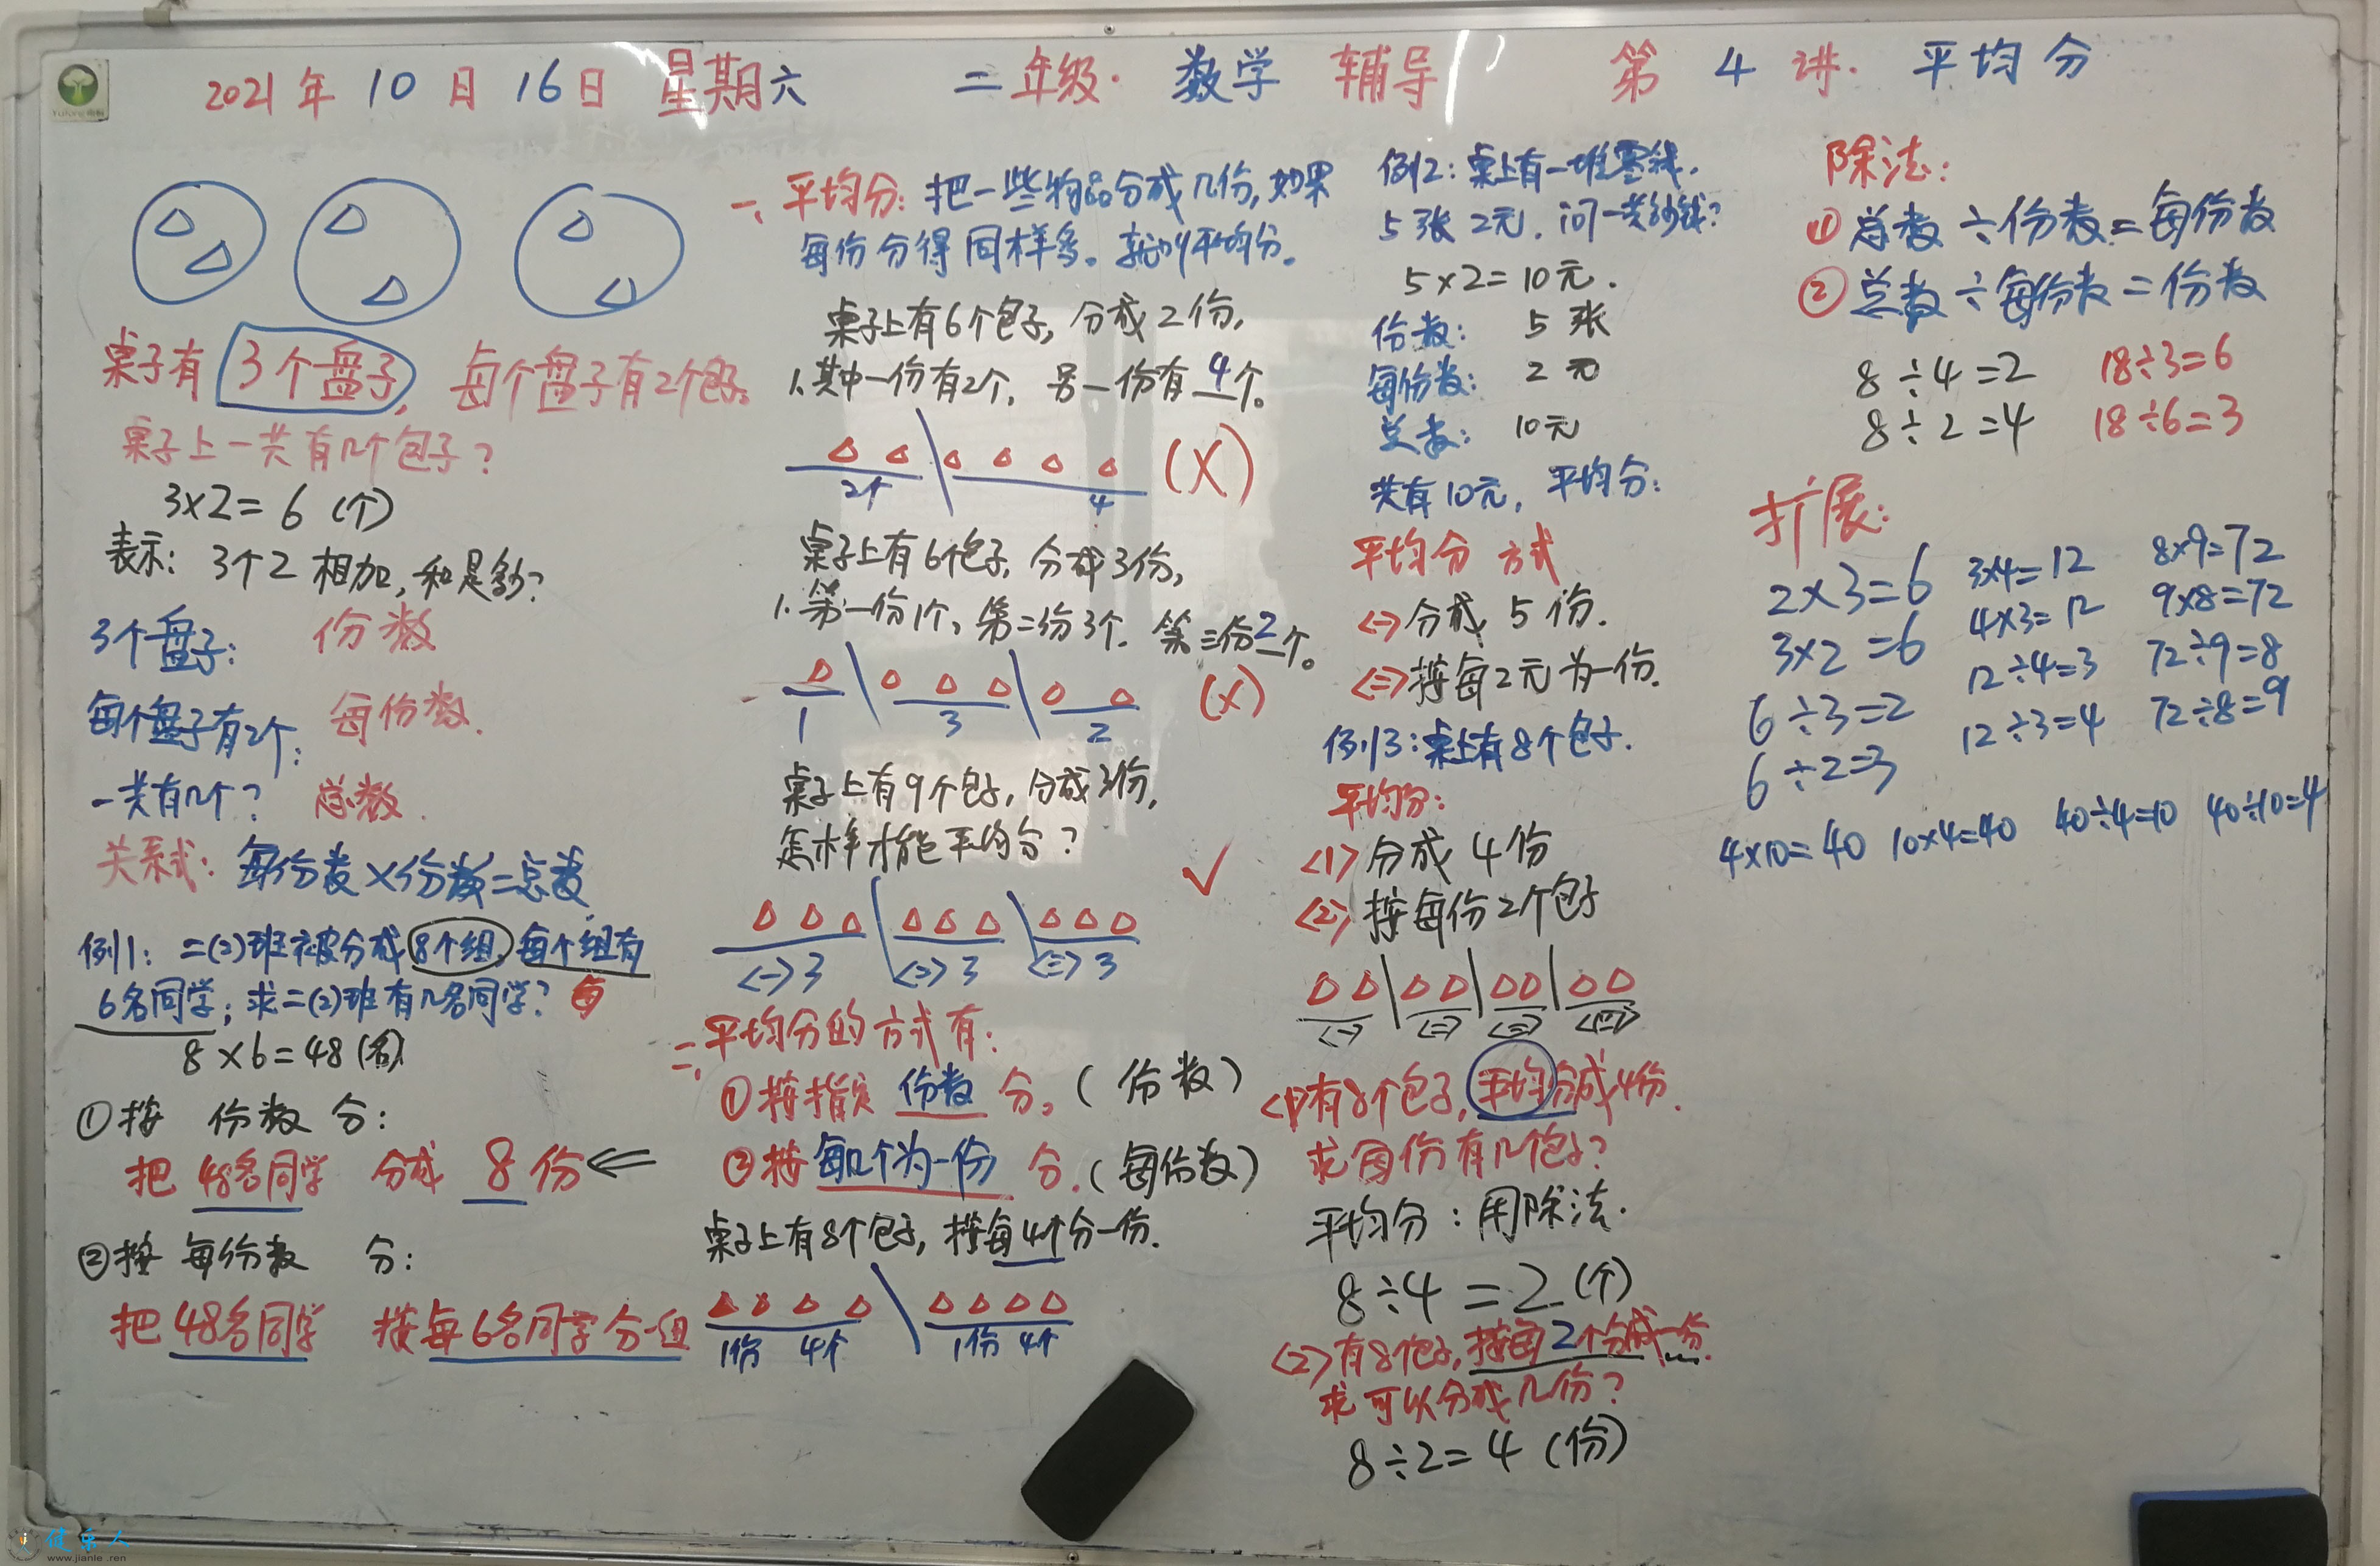 2021年10月16日 星期六 二年级. 数学 辅导 第 4 讲. 平均分
桌子有3个盘子, 每个盘子有2个包子。
桌子上一共有几个包子?
3×2=6(个)
表示: 3个2相加,和是多少?
3个盘子: 份数
每个盘子有2个: 每份数.
一共有几个? 总数.
关系式: 每份数×份数=总数
例1: 二(2)班被分成8个组, 每个组有
6名同学; 求二(2)班有几名同学?
8×6=48(名)
①按 份数 分:
把 48名同学 分成 8份
②按 每份数 分:
把48名同学 按每6名同学分一组
一、平均分: 把一些物品分成几份, 如果
每份分得同样多。就叫平均分。
桌子上有6个包子, 分成2份,
1.其中一份有2个, 另一份有4个。
2个 4 (×)
桌子上有6个包子, 分成3份,
1.第一份1个, 第二份3个. 第三份2个。
1 3 2 (×)
桌子上有9个包子, 分成3份,
怎样才能平均分? ✓
<一>3 <二>3 <三>3
二、平均分的方式有:
①按指定 份数 分。(份数)
②按每几个为一份 分.(每份数)
桌子上有8个包子, 按每4个分一份.
1份 4个 1份 4个
例2: 桌上有一堆零钱.
5张2元. 问一共多少钱?
5×2=10元.
份数: 5张
每份数: 2元
总数: 10元
共有10元, 平均分:
平均分 方式
<一>分成 5份.
<二>按每2元为一份.
例3: 桌上有8个包子.
平均分:
<1>分成4份
<2>按每份2个包子
<一> <二> <三> <四>
<1>有8个包子, 平均分成4份.
求每份有几个包子?
平均分: 用除法.
8÷4=2(个)
<2>有8个包子, 按每2个分成一份.
求可以分成几份?
8÷2=4(份)
除法:
① 总数÷份数=每份数
② 总数÷每份数=份数
8÷4=2 18÷3=6
8÷2=4 18÷6=3
扩展:
2×3=6 3×4=12 8×9=72
3×2=6 4×3=12 9×8=72
6÷3=2 12÷4=3 72÷9=8
6÷2=3 12÷3=4 72÷8=9
4×10=40 10×4=40 40÷4=10 40÷10=4
健乐人
www.jianle.ren